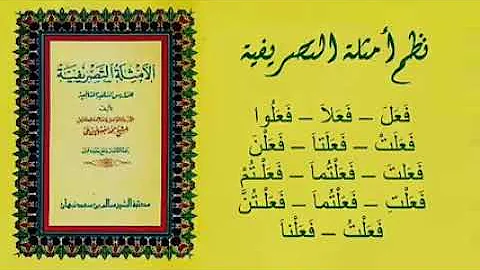 نظم أمثلة التصريفية
فَعَلَ – فَعَلاَ – فَعَلُوا
فَعَلَتْ – فَعَلَتَاَ – فَعَلْنَ
فَعَلْتَ – فَعَلْتُماَ – فَعَلْتُمْ
فَعَلْتِ – فَعَلْتُماَ – فَعَلْتُنَّ
فَعَلْتُ – فَعَلْناَ
الأمثلة التصريفية
للمدارس السلفية الشافعية